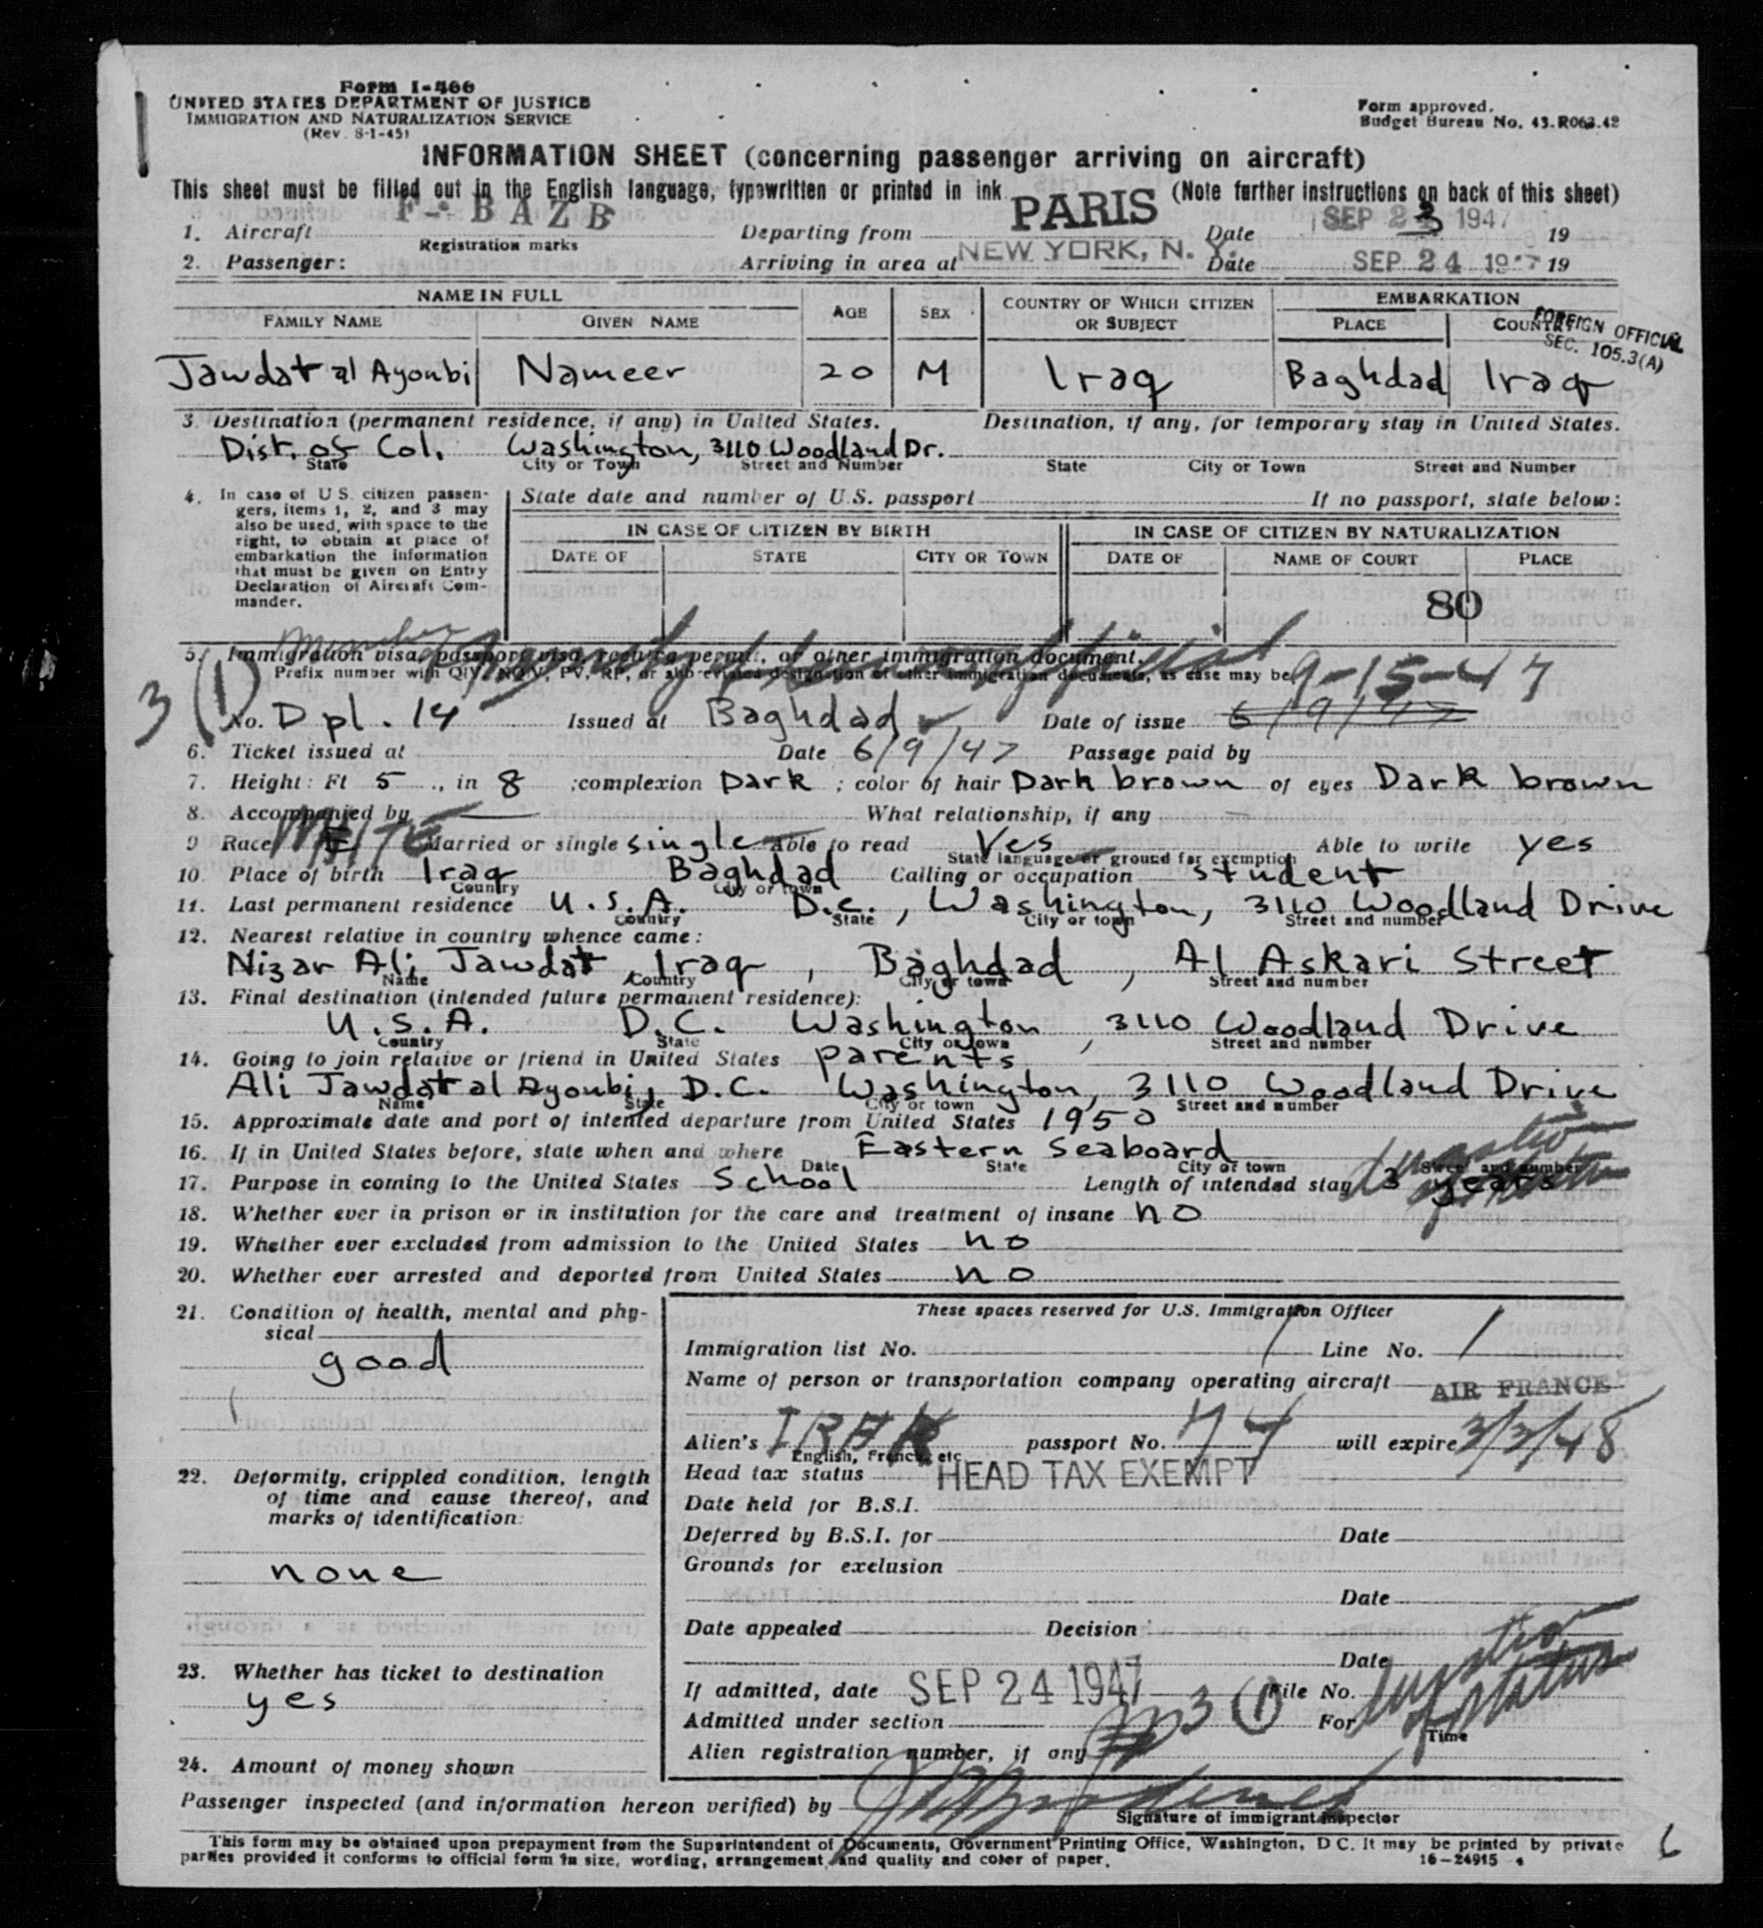 Form I-466
UNITED STATES DEPARTMENT OF JUSTICE
IMMIGRATION AND NATURALIZATION SERVICE
(Rev. 8-1-45)
Form approved.
Budget Bureau No. 43-R063.42
INFORMATION SHEET (concerning passenger arriving on aircraft)
This sheet must be filled out in the English language, typewritten or printed in ink. (Note further instructions on back of this sheet)
1. Aircraft F-BAZB Registration marks Departing from PARIS Date SEP 23 1947 19
2. Passenger: Arriving in area at NEW YORK, N. Y. Date SEP 24 1947 19
NAME IN FULL AGE SEX COUNTRY OF WHICH CITIZEN OR SUBJECT EMBARKATION
FAMILY NAME GIVEN NAME PLACE COUNTRY
FOREIGN OFFICIAL
SEC. 105.3(A)
Jawdat al Ayoubi Nameer 20 M Iraq Baghdad Iraq
3. Destination (permanent residence, if any) in United States. Destination, if any, for temporary stay in United States.
Dist. of Col. Washington, 3110 Woodland Dr.
State City or Town Street and Number State City or Town Street and Number
4. In case of U S. citizen passengers, items 1, 2, and 3 may also be used, with space to the right, to obtain at place of embarkation the information that must be given on Entry Declaration of Aircraft Commander.
State date and number of U.S. passport If no passport, state below:
IN CASE OF CITIZEN BY BIRTH IN CASE OF CITIZEN BY NATURALIZATION
DATE OF STATE CITY OR TOWN DATE OF NAME OF COURT PLACE
80
5. Immigration visa, passport visa, reentry permit, or other immigration document.
Prefix number with QIV, NQIV, PV, RP, or abbreviated designation of other immigration documents, as case may be
3 (1) 9-15-47
No. Dpl. 14 Issued at Baghdad Date of issue 6/9/47
6. Ticket issued at Date 6/9/47 Passage paid by
7. Height: Ft 5 , in 8 ;complexion Dark ; color of hair Dark brown of eyes Dark brown
8. Accompanied by What relationship, if any
9 Race WHITE Married or single single Able to read Yes Able to write yes
State language or ground for exemption
10. Place of birth Iraq Baghdad Calling or occupation student
Country City or town
11. Last permanent residence U.S.A. D.C., Washington, 3110 Woodland Drive
Country State City or town Street and number
12. Nearest relative in country whence came:
Nizar Ali Jawdat, Iraq, Baghdad, Al Askari Street
Name Country City or town Street and number
13. Final destination (intended future permanent residence):
U.S.A. D.C. Washington, 3110 Woodland Drive
Country State City or town Street and number
14. Going to join relative or friend in United States parents
Ali Jawdat al Ayoubi, D.C. Washington, 3110 Woodland Drive
Name State City or town Street and number
15. Approximate date and port of intented departure from United States 1950
16. If in United States before, state when and where Eastern Seaboard
Date State City or town Street and number
17. Purpose in coming to the United States School Length of intended stay 3 years
duration of status
18. Whether ever in prison or in institution for the care and treatment of insane no
19. Whether ever excluded from admission to the United States no
20. Whether ever arrested and deported from United States no
21. Condition of health, mental and physical
good
22. Deformity, crippled condition, length of time and cause thereof, and marks of identification:
none
23. Whether has ticket to destination
yes
24. Amount of money shown
These spaces reserved for U.S. Immigration Officer
Immigration list No. 1 Line No. 1
Name of person or transportation company operating aircraft AIR FRANCE
Alien's IRAK passport No. 74 will expire 3/3/48
English, French, etc
Head tax status HEAD TAX EXEMPT
Date held for B.S.I.
Deferred by B.S.I. for Date
Grounds for exclusion
Date
Date appealed Decision
Date
If admitted, date SEP 24 1947 File No.
Admitted under section 3 (1) For duration of status
Time
Alien registration number, if any
Passenger inspected (and information hereon verified) by
Signature of immigrant inspector
This form may be obtained upon prepayment from the Superintendent of Documents, Government Printing Office, Washington, D C. It may be printed by private
parties provided it conforms to official form in size, wording, arrangement, and quality and color of paper. 16-24915
6